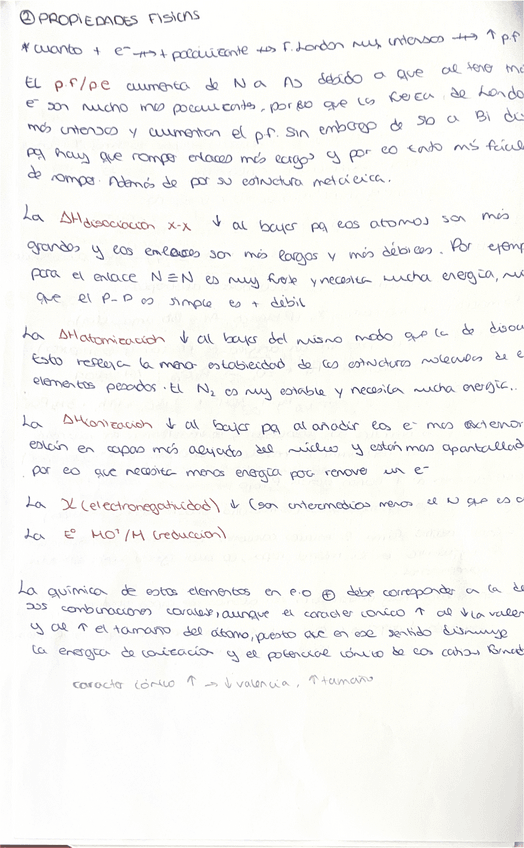 ② PROPIEDADES FISICAS
* cuanto + e⁻ → + polarizante → F. London muy intensas → ↑ p.f
El p.f/pe aumenta de N a As debido a que al tener más
e⁻ son mucho mas polarizantes, por eso que las fuerzas de Londo
más intensas y aumentan el p.f. Sin embargo de Sb a Bi dis
pq hay que romper enlaces más largos y por eo tanto más fácil
de romper. Además de por su estructura metálica.
La ΔHdisociacion x-x ↓ al bajar pq eos atomos son más
grandos y eos enlaces son más largos y más débiles. Por ejemp
para el enlace N≡N es muy fuerte y necesita mucha energía,
que el P-P es simple es + débil
La ΔHatomizacion ↓ al bajar del mismo modo que la de disoc
Esto refleja la menor estabilidad de las estructuras moleculas de e
elementos pesados. El N₂ es muy estable y necesita mucha energía..
La ΔHionizacion ↓ al bajar pq al añadir eos e⁻ mas exterior
están en capas más alejadas del núcleo y están mas apantallad
por eo que necesita menos energía para remove un e⁻
La X (electronegatividad) ↓ (son intermedios menos el N que es
La E° MO'/M (reduccion)
La química de estos elementos en e.o ⊕ debe corresponder a la de
sus combinaciones covales, aunque el caracter ionico ↑ al ↓ la valen
y al ↑ el tamaño del átomo, puesto que en ese sentido disminuye
la energía de ionización y el potencial iónico de eos
caracter iónico ↑ → ↓ valencia, ↑ tamaño